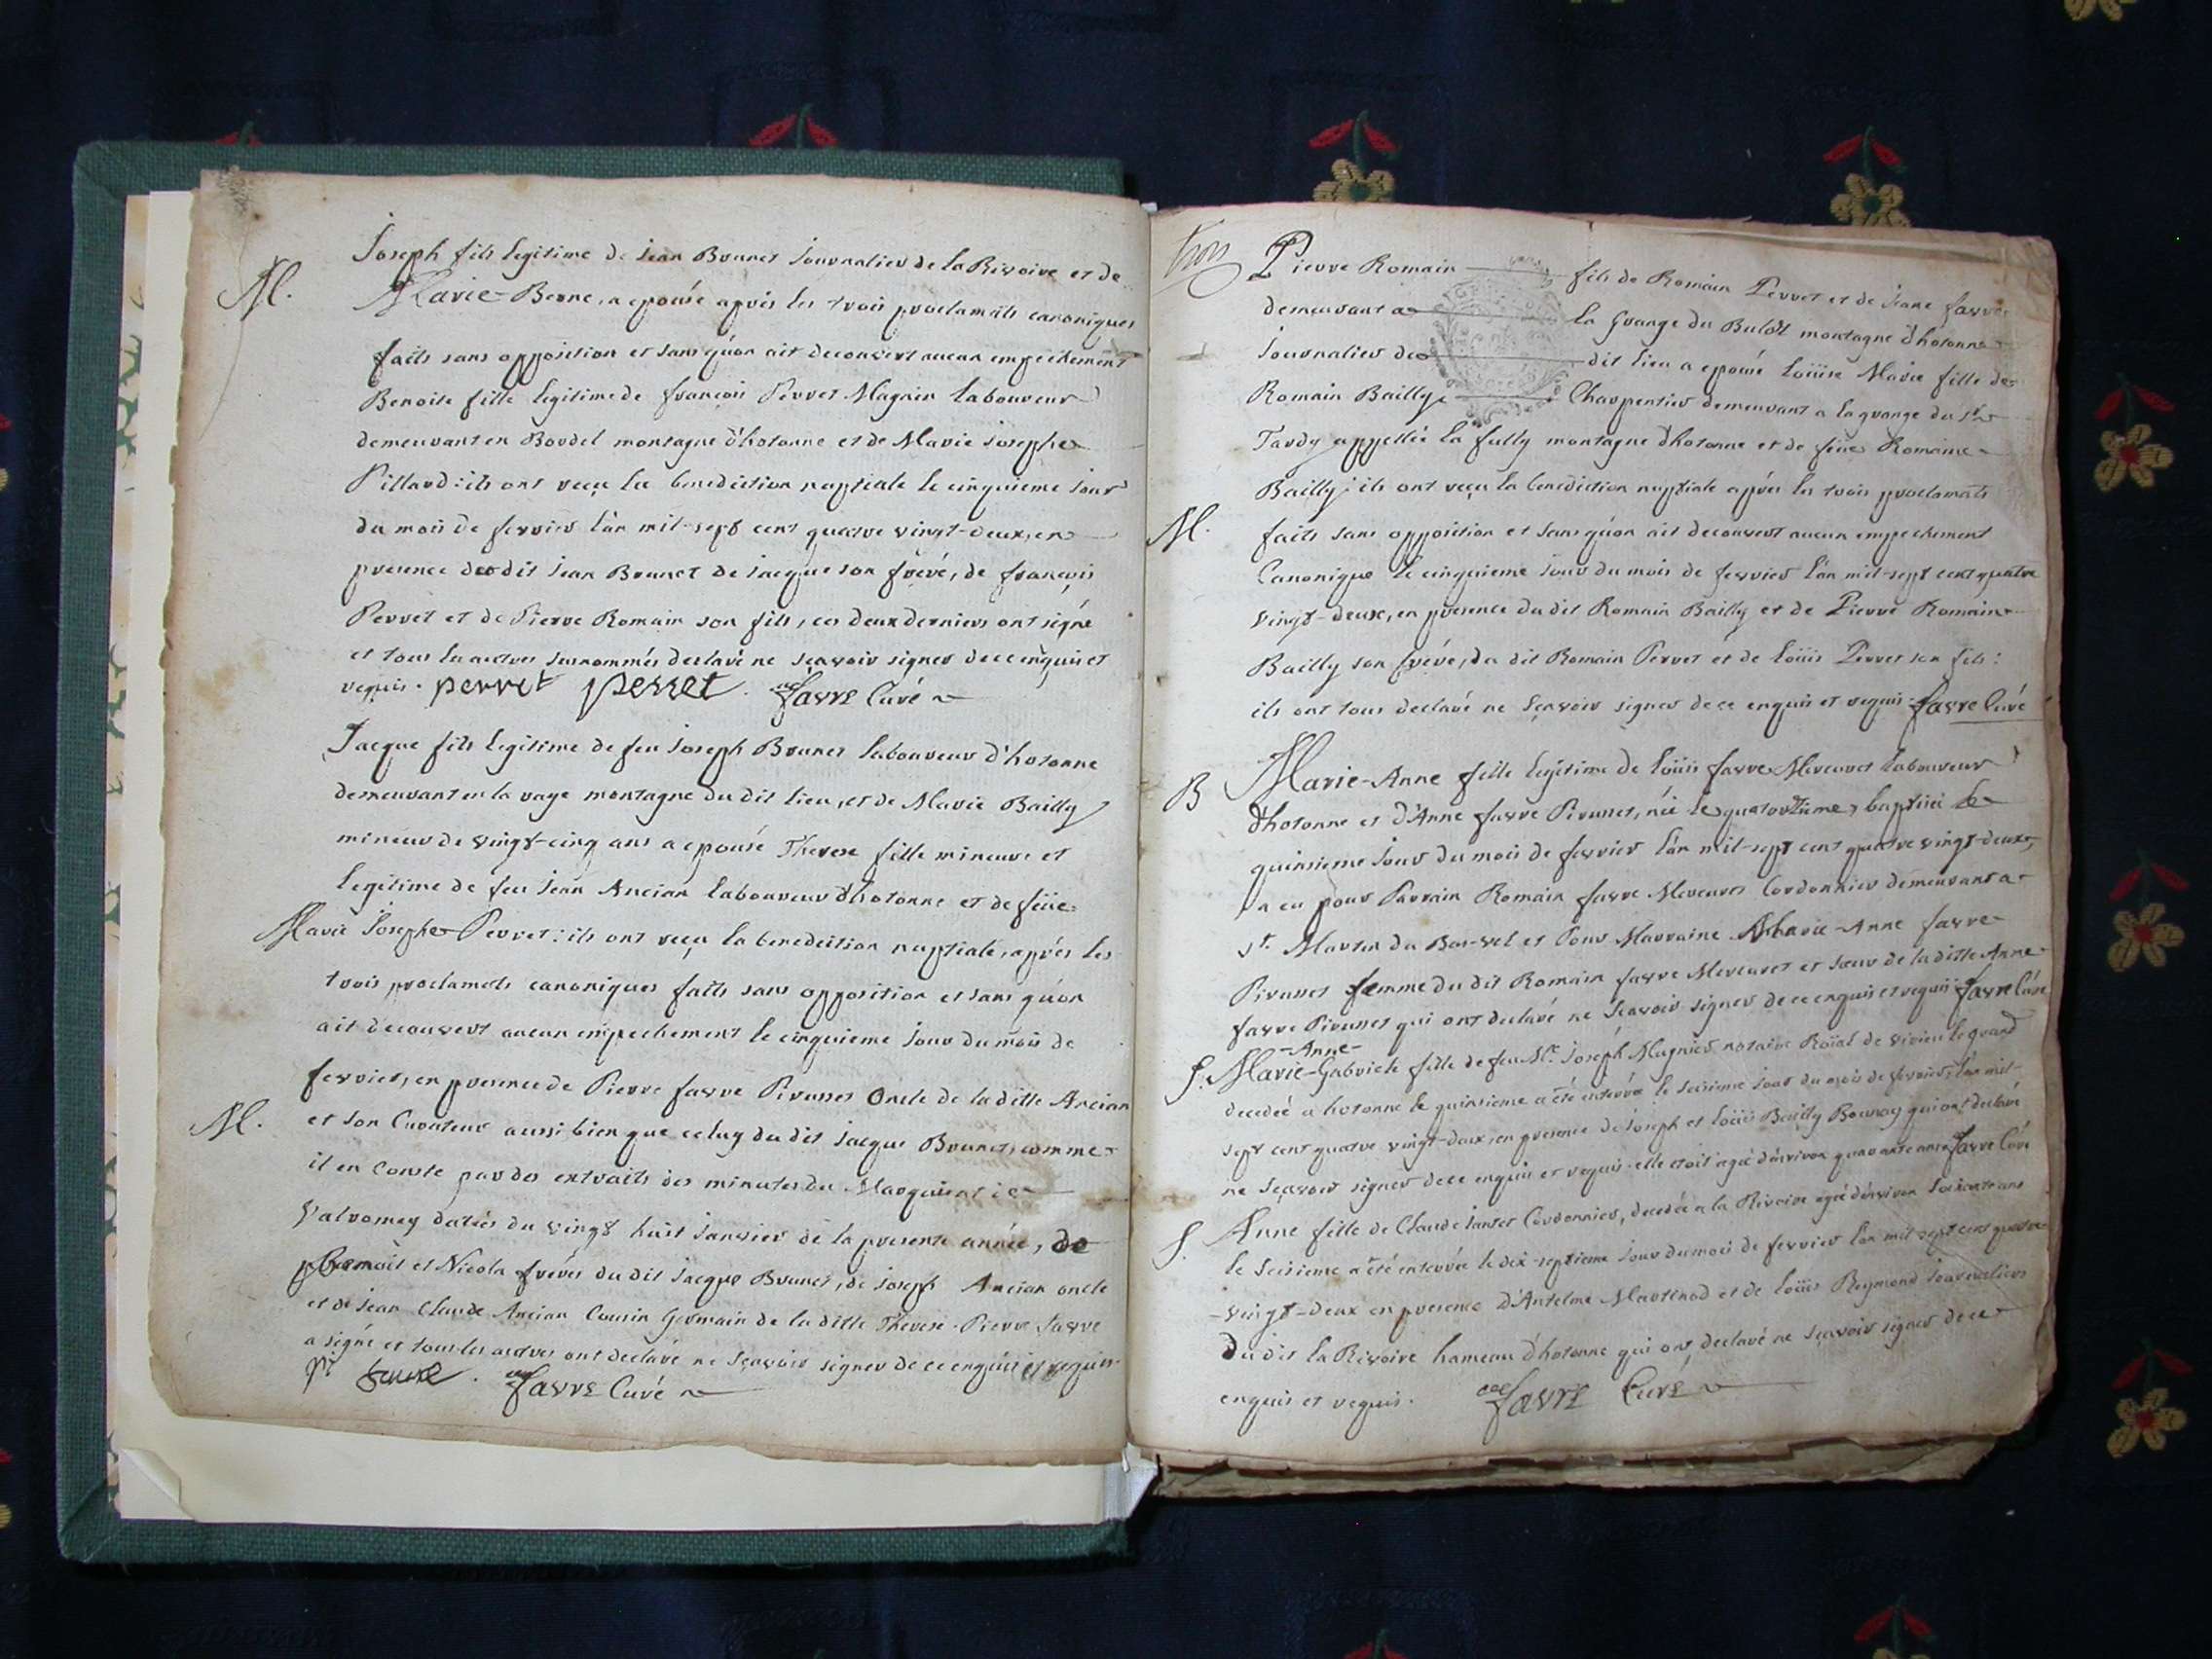 Joseph fils legitime de Jean Brunet Journalier de la Rivoire et de
M.
Marie-Berne, a epousé aprés les trois proclamats canoniques
faits sans opposition et sans qu'on ait decouvert aucun empechement
Benoite fille legitime de françois Perret Magnin laboureur
demeurant en Bordel montagne d'hotonne et de Marie Josephe
Pillard: ils ont reçu la benediction nuptiale le cinquieme jour
du mois de fevrier l'an mil-sept cent quatre vingt-deux, en
presence du dit Jean Brunet de Jacque son frére, de françois
Perret et de Pierre Romain son fils, ces deux derniers ont signé
et tous les autres surnommés declaré ne sçavoir signer de ce enquis et
requis. perret perret. favre Curé
Jacque fils legitime de feu Joseph Brunet laboureur d'hotonne
demeurant en la raye montagne du dit lieu, et de Marie Bailly
mineur de vingt-cinq ans a epousé Therese fille mineure et
legitime de feu Jean Ancian laboureur d'hotonne et de feüe
Marie Josephe Perret: ils ont reçu la benediction nuptiale, aprés les
trois proclamats canoniques faits sans opposition et sans qu'on
ait decouvert aucun empechement le cinquieme jour du mois de
fevrier, en presence de Pierre favre Prunet Oncle de la ditte Ancian
M.
et son Curateur aussi bien que celuy du dit Jacque Brunet, comme
il en conste par des extraits des minutes du Marquisat de
Valromey datés du vingt huit Janvier de la presente année, de
Benoit et Nicola fréres du dit Jacque Brunet, de Joseph Ancian oncle
et de Jean Claude Ancian Cousin Germain de la ditte Therese. Pierre favre
a signé et tous les autres ont declaré ne sçavoir signer de ce enquis et requis
favre Curé
trois
Pierre Romain fils de Romain Perret et de Jeane favre
demeurant a la Grange du montagne d'hotonne
Journalier du dit lieu a epousé Loüise Marie fille de
Romain Bailly Charpentier demeurant a la grange du Sr
Tardy appellée la fully montagne d'hotonne et de feüe Romaine
Bailly: ils ont reçu la benediction nuptiale aprés les trois proclamats
M.
faits sans opposition et sans qu'on ait decouvert aucun empechement
Canonique le cinquieme jour du mois de fevrier l'an mil-sept cent quatre
vingt-deux, en presence du dit Romain Bailly et de Pierre Romain
Bailly son frére, du dit Romain Perret et de Loüis Perret son fils:
ils ont tous declaré ne sçavoir signer de ce enquis et requis. favre Curé
B
Marie-Anne fille legitime de Loüis favre Mercuret laboureur
d'hotonne et d'Anne favre Prunet, née le quatorzieme, baptisée le
quinsieme jour du mois de fevrier l'an mil-sept cent quatre vingt-deux,
a eu pour Parrain Romain favre Mercuret Cordonnier demeurant a
St. Martin du et pour Marraine Marie-Anne favre
Prunet femme du dit Romain favre Mercuret et sœur de la ditte Anne
favre Prunet qui ont declaré ne sçavoir signer de ce enquis et requis favre Curé
-Anne-
S. Marie-Gabriele fille de feu Me. Joseph Magnier notaire Roïal de virieu le grand
decedeé a hotonne le quinsieme a été enterrée le seisieme jour du mois de fevrier l'an mil-
sept cent quatre vingt-deux, en presence de Joseph et Loüis Bailly qui ont declaré
ne sçavoir signer de ce enquis et requis. elle etoit ageé d'environ quarante annes favre Curé
S.
Anne fille de Claude Cordonnier, decedée a la Rivoire ageé d'environ soixante ans
le seisieme a été enterrée le dix-septieme jour du mois de fevrier l'an mil sept cent quatre
-vingt-deux en presence d'Antelme Martinod et de Loüis Reymond Journaliers
du dit la Rivoire hameau d'hotonne qui ont declaré ne sçavoir signer de ce
enquis et requis. favre Curé